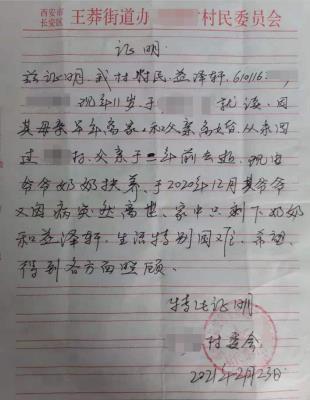 西安市
长安区
王莽街道办 村民委员会
证明
兹证明,我村村民,益泽轩,610116
现年11岁于 就读,因
其母亲早年离家,和父亲离婚,从未回
过 村,父亲于二年前去逝,现由
爷爷奶奶扶养,于2020年12月其爷爷
又因病突然离世,家中只剩下奶奶
和益泽轩,生活特别困难,希望
得到各方面照顾。
特此证明
村委会
2021年2月23日